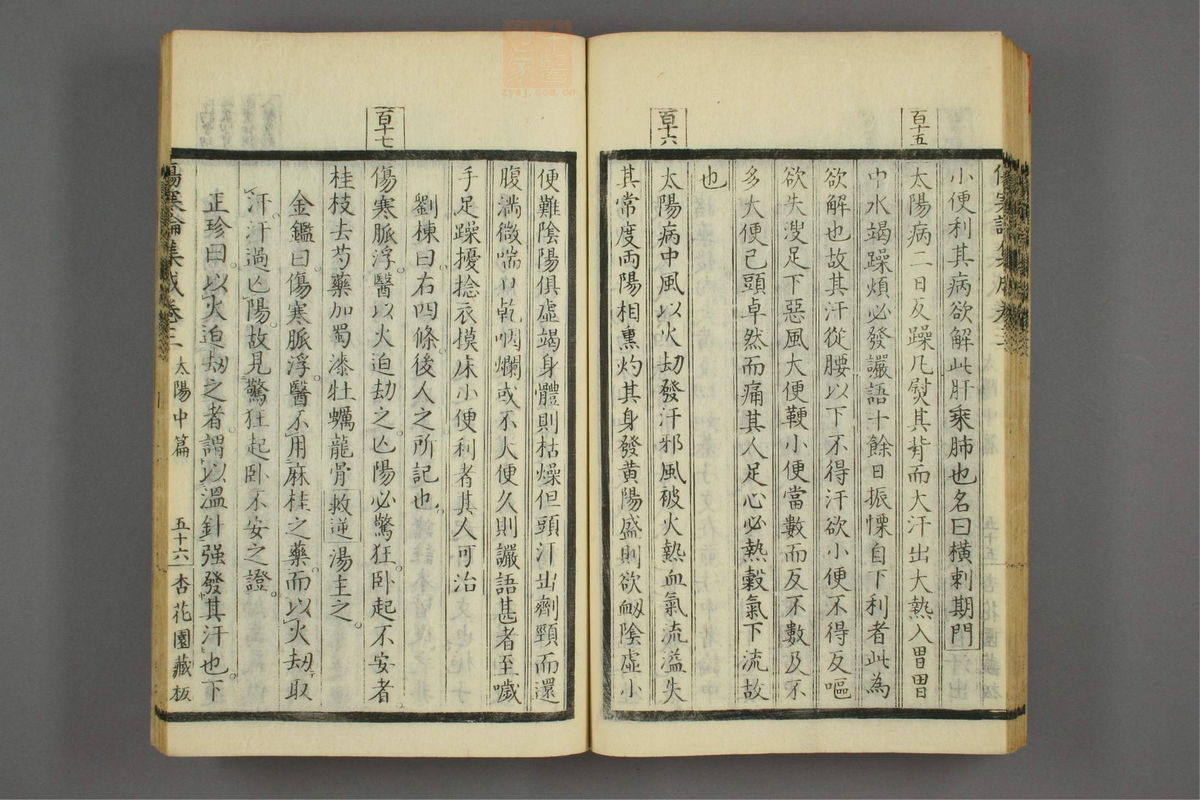 百十五
小便利其病欲解此肝乘肺也名曰橫刺期門
太陽病二日反躁凡熨其背而大汗出大熱入胃胃
中水竭躁煩必發讝語十餘日振慄自下利者此為
欲解也故其汗從腰以下不得汗欲小便不得反嘔
欲失溲足下惡風大便鞕小便當數而反不數及不
多大便已頭卓然而痛其人足心必熱穀氣下流故
也
百十六
太陽病中風以火劫發汗邪風被火熱血氣流溢失
其常度兩陽相熏灼其身發黃陽盛則欲衄陰虛小
便難陰陽俱虛竭身體則枯燥但頭汗出劑頸而還
腹滿微喘口乾咽爛或不大便久則讝語甚者至噦
手足躁擾捻衣摸床小便利者其人可治
劉棟曰右四條後人之所記也
百十七
傷寒脈浮醫以火迫劫之亡陽必驚狂臥起不安者
桂枝去芍藥加蜀漆牡蠣龍骨救逆湯主之
金鑑曰傷寒脈浮醫不用麻桂之藥而以火劫取
汗汗過亡陽故見驚狂起臥不安之證
正珍曰以火迫劫之者謂以溫針强發其汗也下
傷寒論集成卷三 太陽中篇 五十六 杏花園藏板